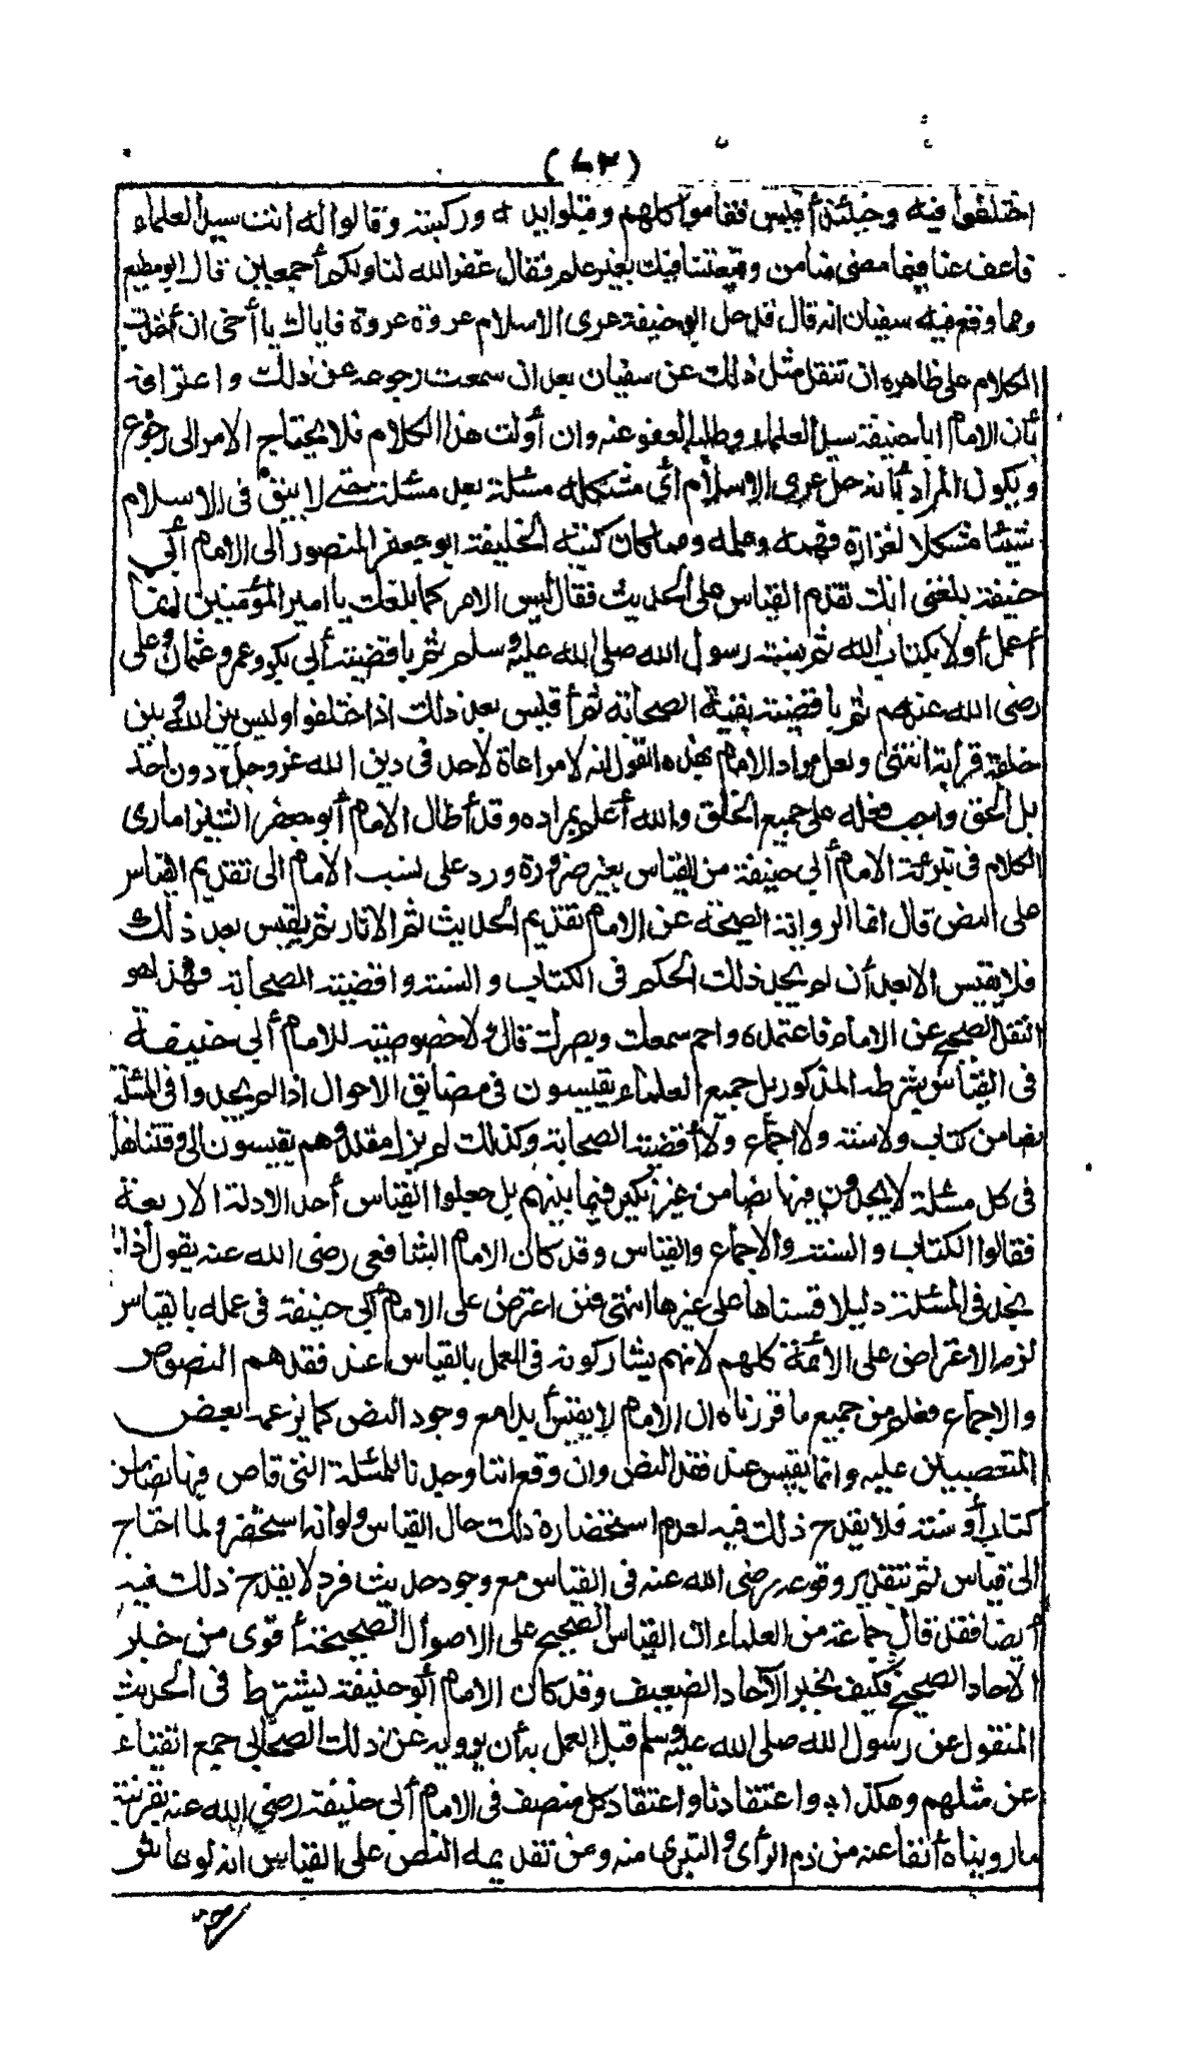 (٦٣)
اختلفوا فيه وحينئذ أقيس فقاموا كلهم وقبلوا يديه وركبته وقالوا له انت سيد العلماء
فاعف عنا فيما مضى منا من وقيعتنا فيك بغير علم فقال غفر الله لنا ولكم أجمعين قال ابو مطيع
ومما وقع فيه سفيان انه قال قد حل ابو حنيفة عرى الاسلام عروة عروة فاياك يا أخى ان أخذت
الكلام على ظاهره ان تنقل مثل ذلك عن سفيان بعد ان سمعت رجوعه عن ذلك واعترافه
بأن الامام ابا حنيفة سيد العلماء وطلبه العفو عنه وان أولت هذا الكلام فلا يحتاج الامر الى رجوع
ويكون المراد بأنه حل عرى الاسلام أي مشكله مسئلة بعد مسئلة حتى لا يبق فى الاسلام
شيئا مشكلا لغزارة فهمه وعلمه ومما كان كتبه الخليفة ابو جعفر المنصور الى الامام أبى
حنيفة بلغنى انك تقدم القياس على الحديث فقال ليس الامر كما بلغك يا امير المؤمنين انما
أعمل أولا بكتاب الله ثم بسنة رسول الله صلى الله عليه وسلم ثم باقضية أبى بكر وعمر وعثمان وعلى
رضى الله عنهم ثم باقضية بقية الصحابة ثم أقيس بعد ذلك اذا اختلفوا وليس بين الله وبين
خلقه قرابة انتهى ولعل مراد الامام بهذه القول انه لا مراعاة لاحد فى دين الله عز وجل دون احد
بل الحق واجب فعله على جميع الخلق والله أعلم بمراده وقد أطال الامام أبو جعفر الشيزامارى
الكلام فى تبرئة الامام أبى حنيفة من القياس بغير ضرورة ورد على من نسب الامام الى تقديم القياس
على النص قال انما الرواية الصحيحة عن الامام تقديم الحديث ثم الاثار ثم يقيس بعد ذلك
فلا يقيس الا بعد أن لم يجد ذلك الحكم فى الكتاب والسنة واقضية الصحابة فهذا هو
النقل الصحيح عن الامام فاعتمده واحم سمعك وبصرك قال ولا خصوصية للامام أبى حنيفة
فى القياس بشرطه المذكور بل جميع العلماء يقيسون فى مضايق الاحوال اذا لم يجدوا فى المسئلة
نصا من كتاب ولا سنة ولا اجماع ولا أقضية الصحابة وكذلك لم يزل مقلدوهم يقيسون الى وقتنا هذا
فى كل مسئلة لا يجدون فيها نصا من غير نكير فيما بينهم بل جعلوا القياس أحد الادلة الاربعة
فقالوا الكتاب والسنة والاجماع والقياس وقد كان الامام الشافعى رضى الله عنه يقول اذا لم
نجد فى المسئلة دليلا قسناها على غيرها انتهى فمن اعترض على الامام أبى حنيفة فى عمله بالقياس
لزمه الاعتراض على الائمة كلهم لانهم يشاركونه فى العمل بالقياس عند فقدهم النصوص
والاجماع فعلم من جميع ما قررناه ان الامام لا يقيس أبدا مع وجود النص كما يزعمه بعض
المتعصبين عليه وانما يقيس عند فقد النص وان وقع اننا وجدنا للمسئلة التى قاس فيها نصا من
كتاب أو سنة فلا يقدح ذلك فيه لعدم استحضاره ذلك حال القياس ولو انه استحضره لما احتاج
الى قياس ثم بتقدير وقوعه رضى الله عنه فى القياس مع وجود حديث فرد لا يقدح ذلك فيه
أيضا فقد قال جماعة من العلماء ان القياس الصحيح على الاصول الصحيحة أقوى من خبر
الاحاد الصحيح فكيف بخبر الآحاد الضعيف وقد كان الامام أبو حنيفة يشترط فى الحديث
المنقول عن رسول الله صلى الله عليه وسلم قبل العمل به أن يرويه عن ذلك الصحابى جمع اتقياء
عن مثلهم وهكذا اه واعتقادنا واعتقاد كل منصف فى الامام أبى حنيفة رضى الله عنه بقرينة
ما رويناه أنفا عنه من ذم الرأى والتبرى منه ومن تقديمه النص على القياس انه لو عاش